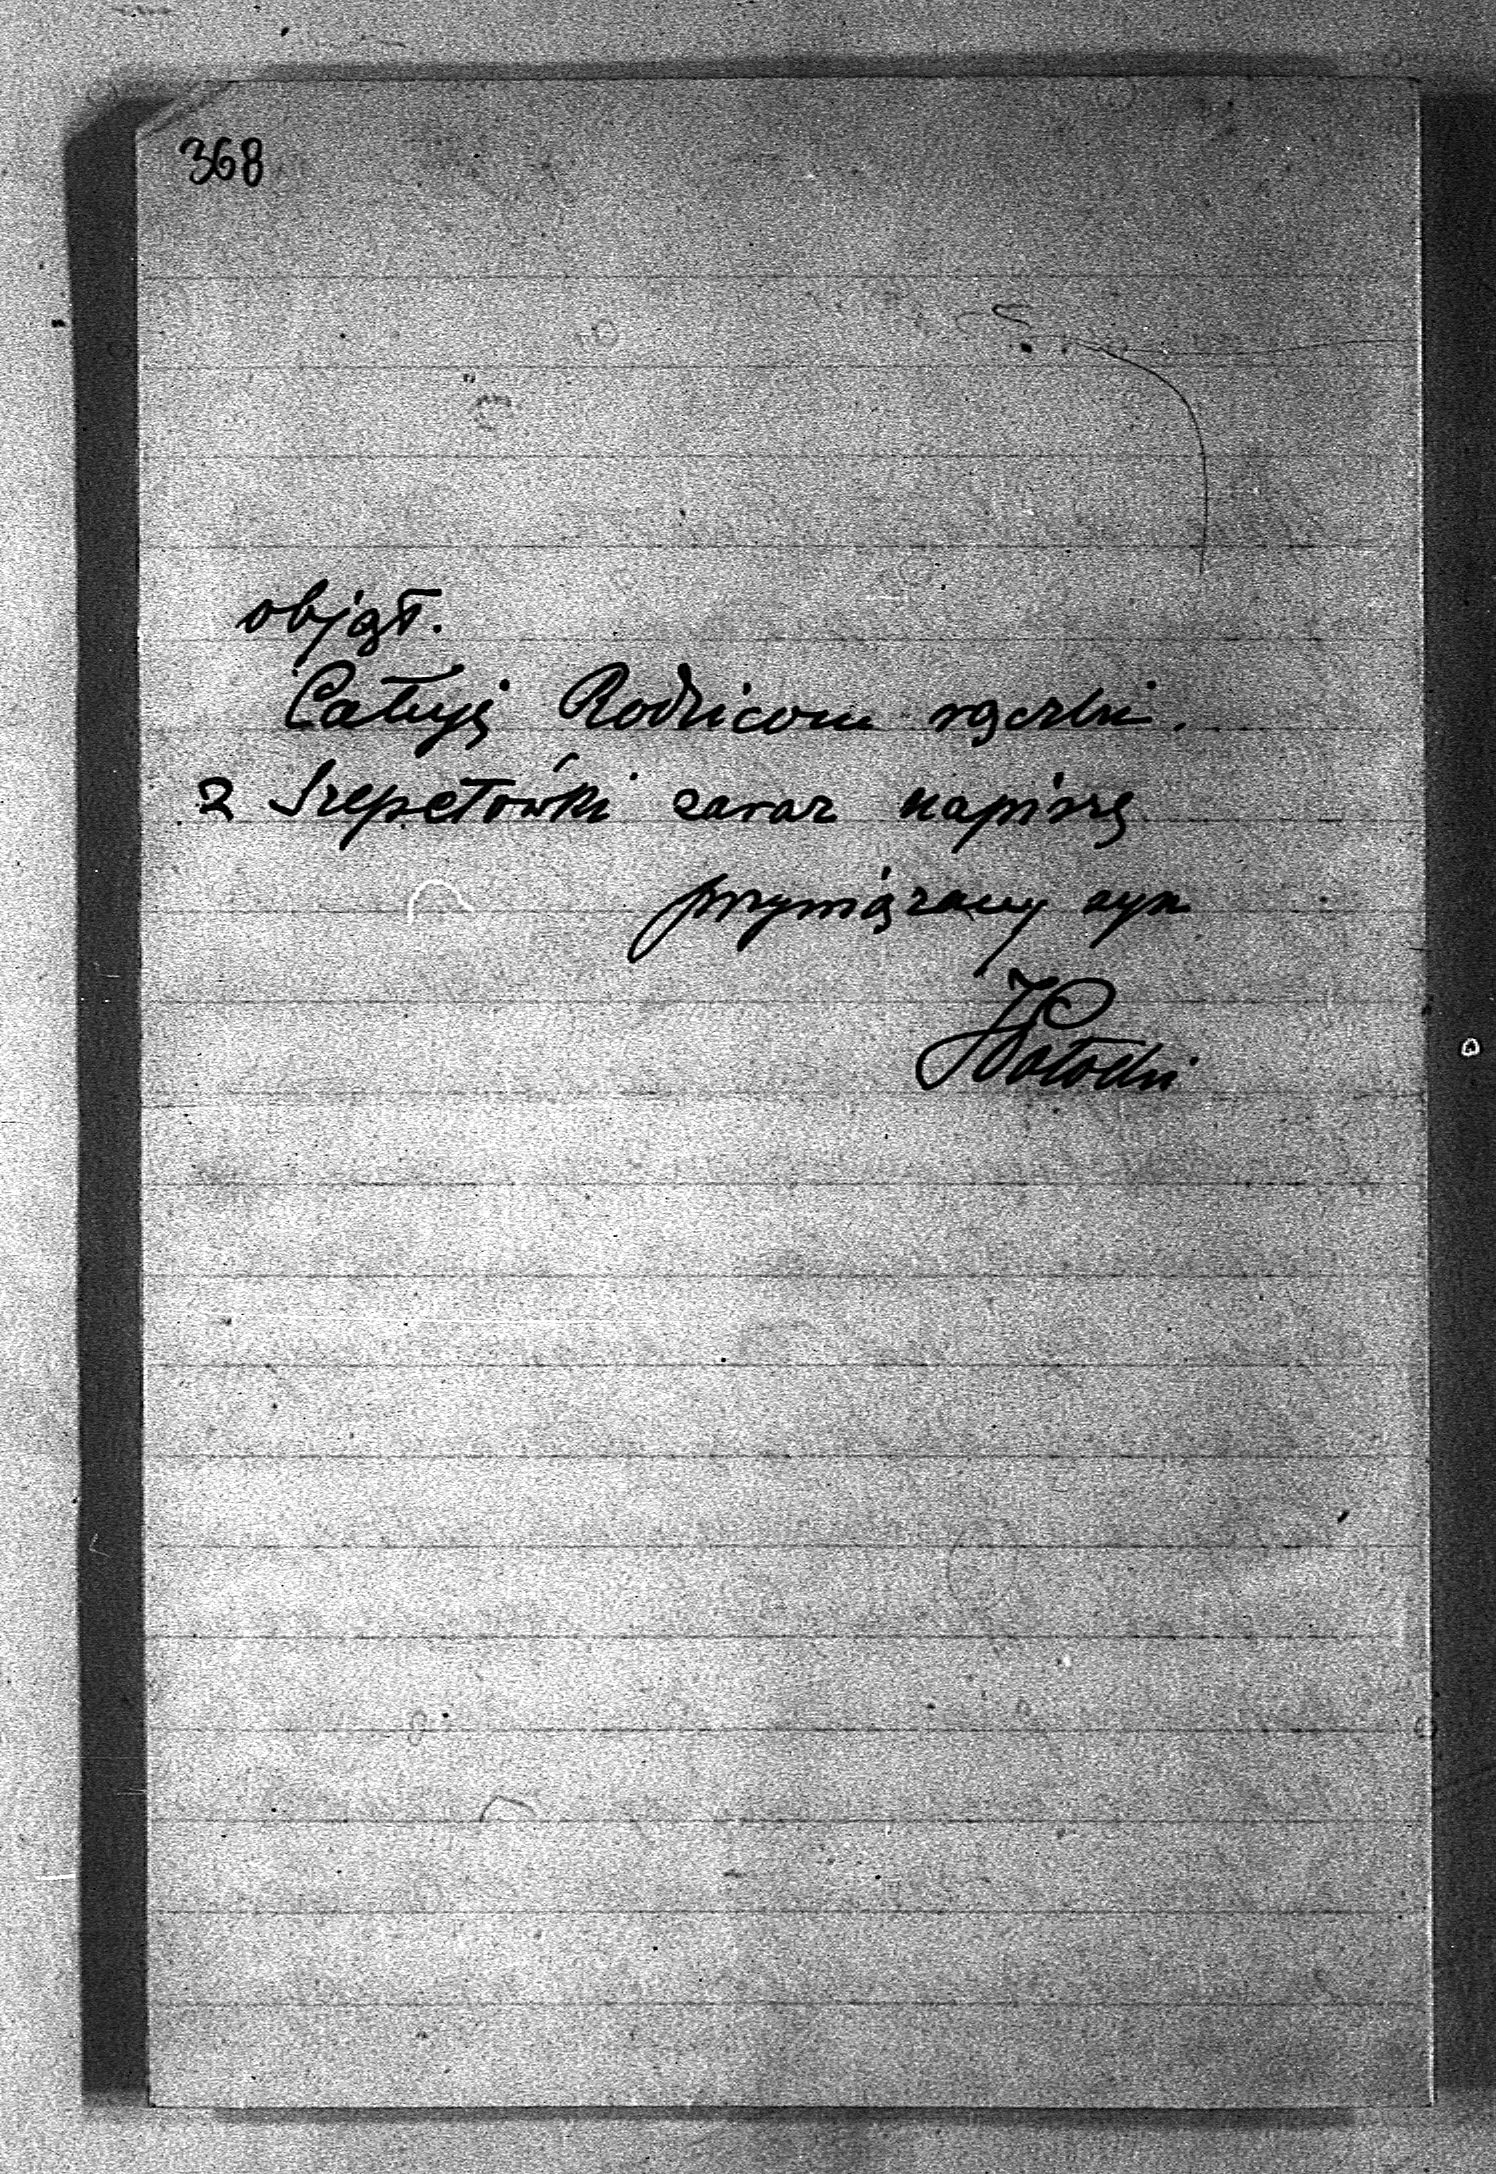 368
objął.
Całuję Rodzicom rączki.
Z Szepetówki zaraz napiszę
przywiązany syn
JPotocki